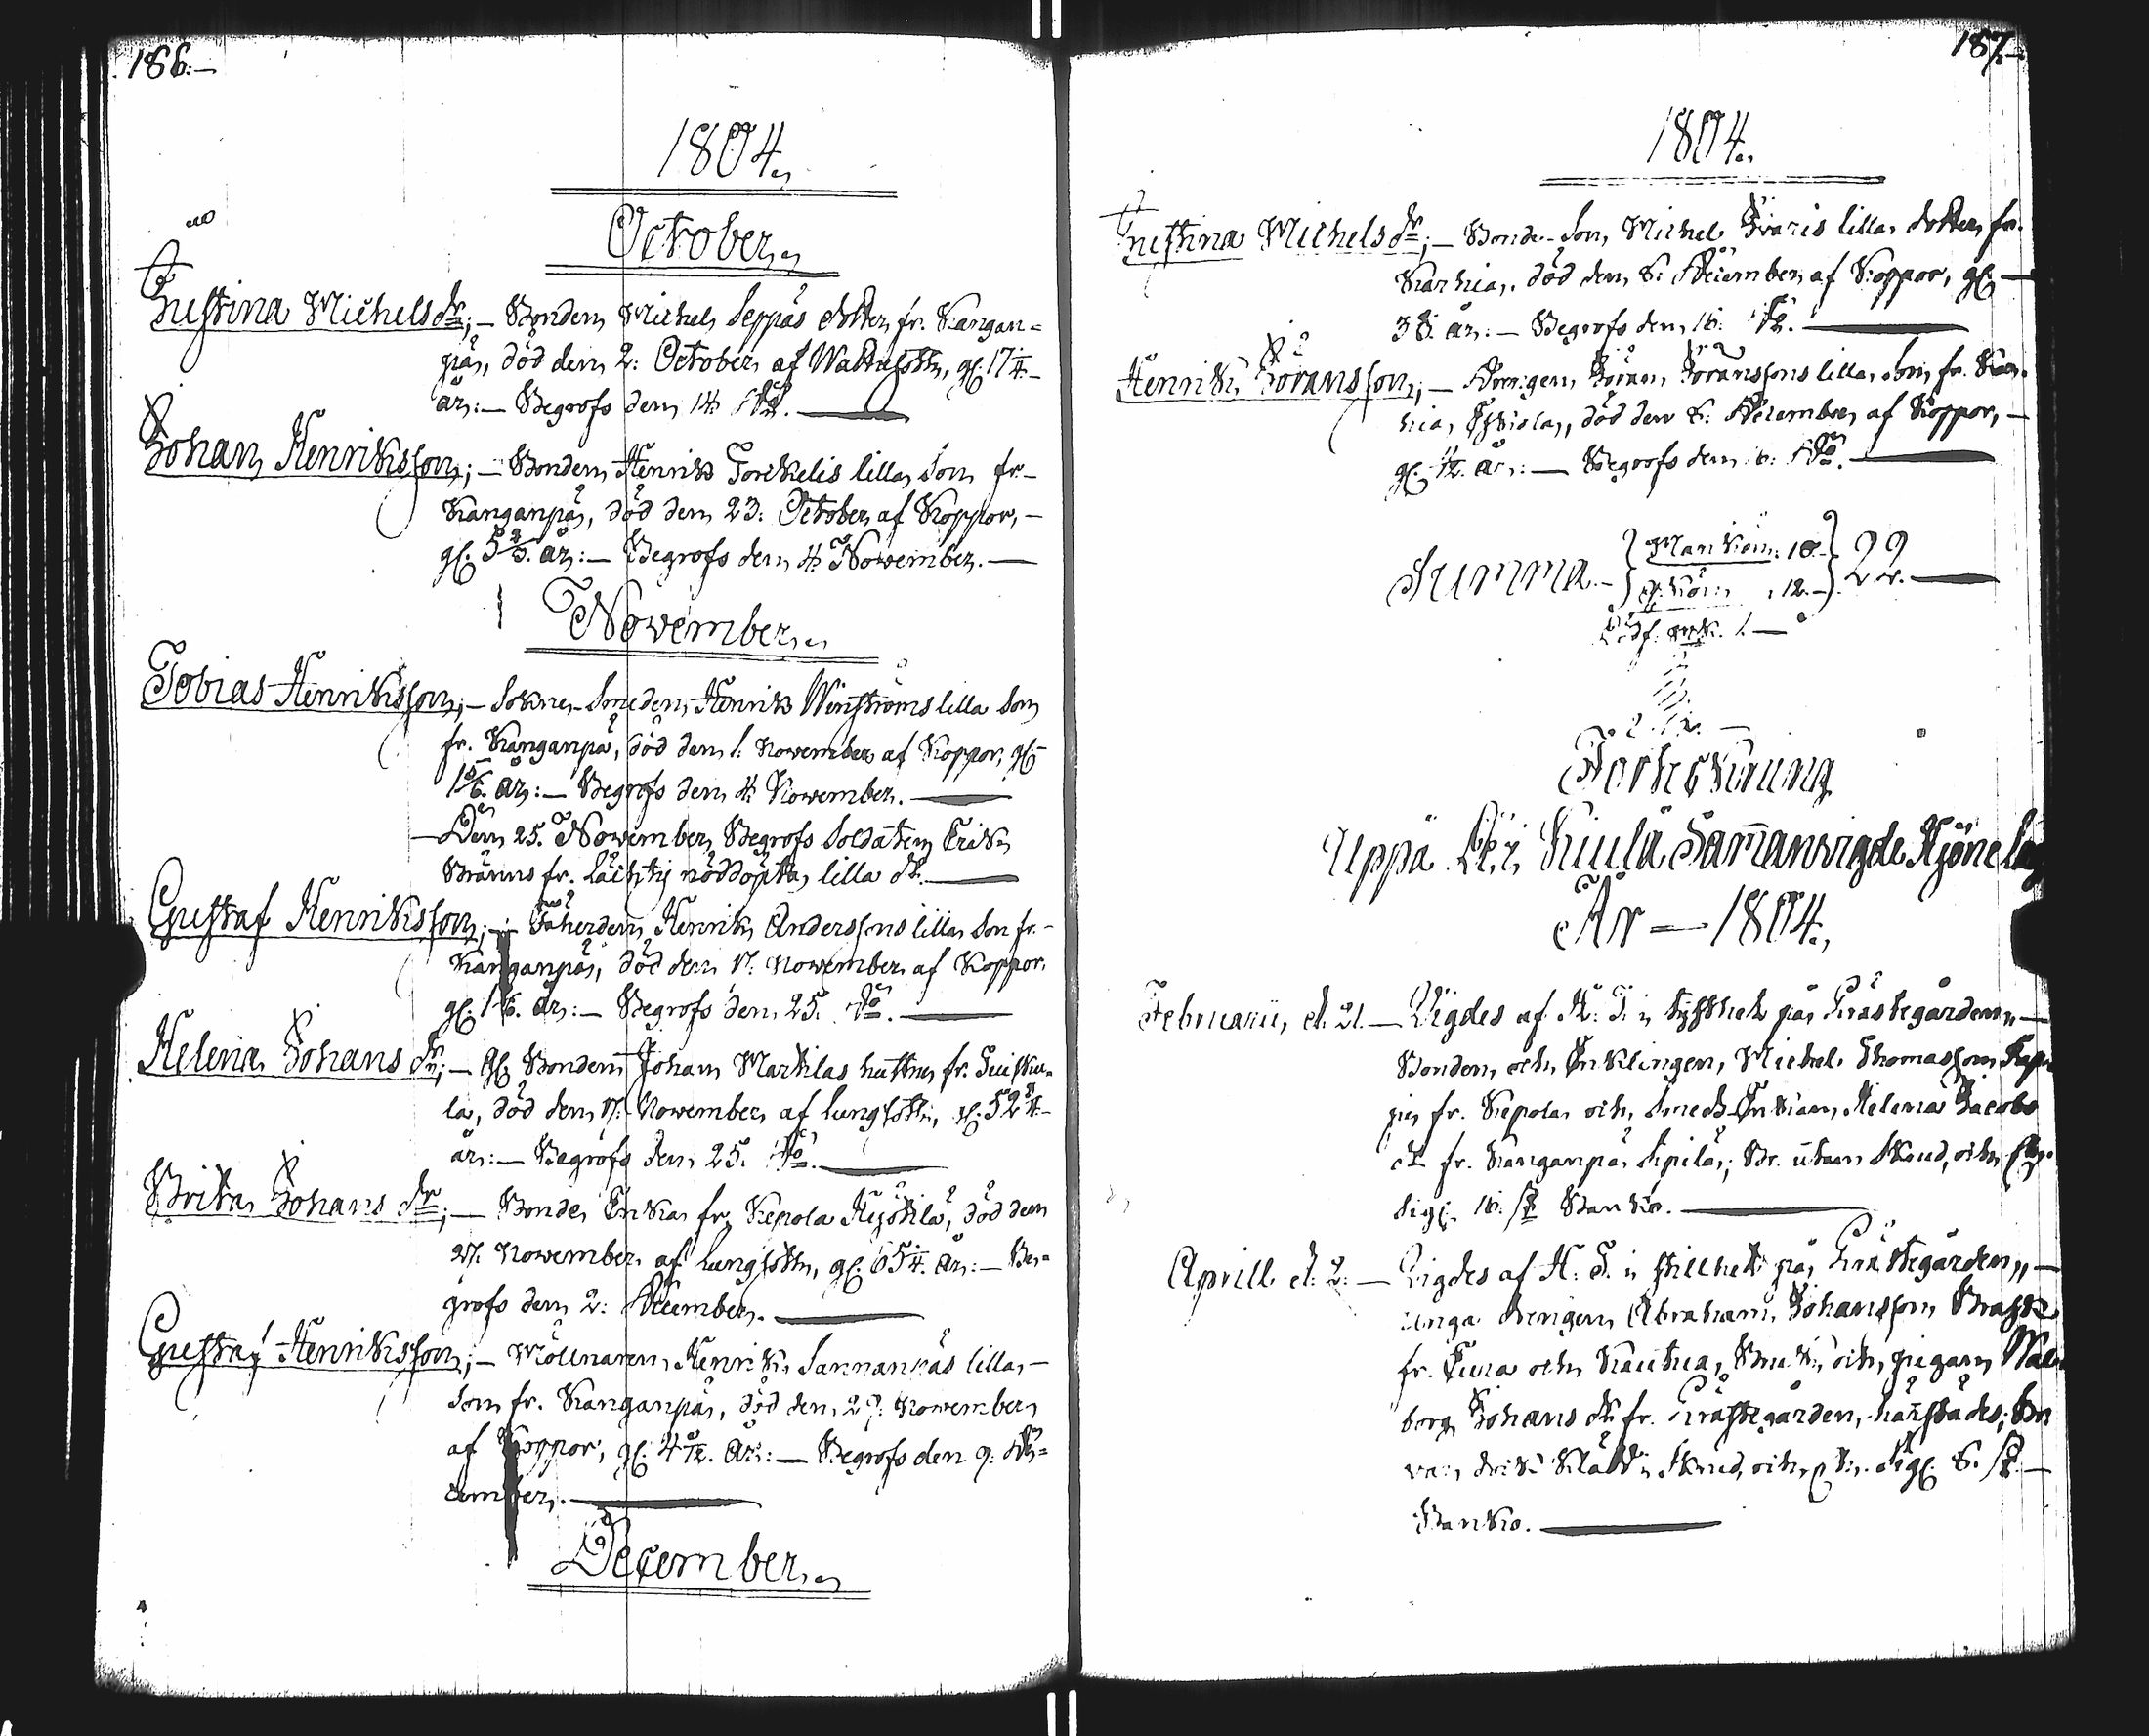 186.
1804.
October.
Christina Michels dr; — Bonden Michel Seppäs dotter fr. Kangan=
pää, död den 2. October af Wattusotn, gl. 17 1/4
år: — Begrofs den 14. do.
Johan Henriksson; — Bonden Henrik Torkelis lilla son fr.
Kanganpää, död den 23. October af Koppor, —
gl. 5 2/3. år: — Begrofs den 4. November.
November.
Tobias Henriksson; — Sokne-Smeden Henrik Winströms lilla son
fr. Kanganpä, död den 1. November af Koppor, gl.
1 5/6. år: — Begrofs den 4. November.
— Den 25. November Begrofs Soldaten Erik
Bränns fr. nöddöpta lilla dr.
Gustaf Henriksson; — Fåherden Henrik Anderssons lilla son fr.
Kanganpää, död den 17. November af Koppor,
gl. år: — Begrofs den 25. do.
Helena Johans dr; — gl. Bonden Johan Marttilas hustru fr. Tuisku=
la, död den 17. November af lungsotn, gl. 52 3/4
år: — Begrofs den 25. do.
Brita Johans dr; — Bonde Enka fr. Kepola Mjökilä, död den
27. November af lungsotn, gl. 65 1/4. år: — Be=
grofs den 2. December.
Gustaf Henriksson; — Möllnaren Henrik Sannanpäs lilla
son fr. Kanganpää, död den 29. November
af Koppor, gl. 4 år: — Begrofs den 9. De=
cember.
December.
187.
1804.
Christina Michels dr; — Bonde-Son Michel lilla dotter fr.
Karhia, död den 6. December af Koppor, gl. —
år: — Begrofs den 16. do.
Henrik Göransson; — Drengen Göran Göranssons lilla son fr. Kar=
hia död den 6. December af Koppor, —
gl. 1/2. år: — Begrofs den 16. do.
Summa. — Mankön: 10. 22.
q. Kön 12. —
1. —
Förteckning
Uppå uti Kiula Sammanvigde Hjonelag
År — 1804.
Februarii, d. 21. — Vigdes af H. T. i tysthet på Prästegården, —
Bonden och Enklingen, Michel Thomasson
fr. Kepola och Smeds-Enkian Helena Jacobs
dr fr. Kanganpää Sipilä; Br. utan Skrud, och
16. Banko.
Aprill d. 2. — Vigdes af H. T. i stillhet på Prästegården, —
unga drengen Abraham Johansson
fr. Eura och Kauttua, Bruk, och pigan Wal
borg Johans dr fr. Prästegården, härstädes; Br
Skrud, och 6.
Banko.